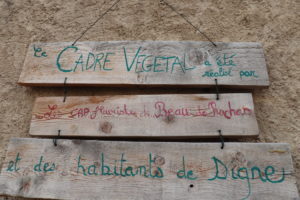 Le CADRE VÉGETAL a été
réalisé par
Les CAP fleuriste de Beau de Rochas
et des habitants de Digne